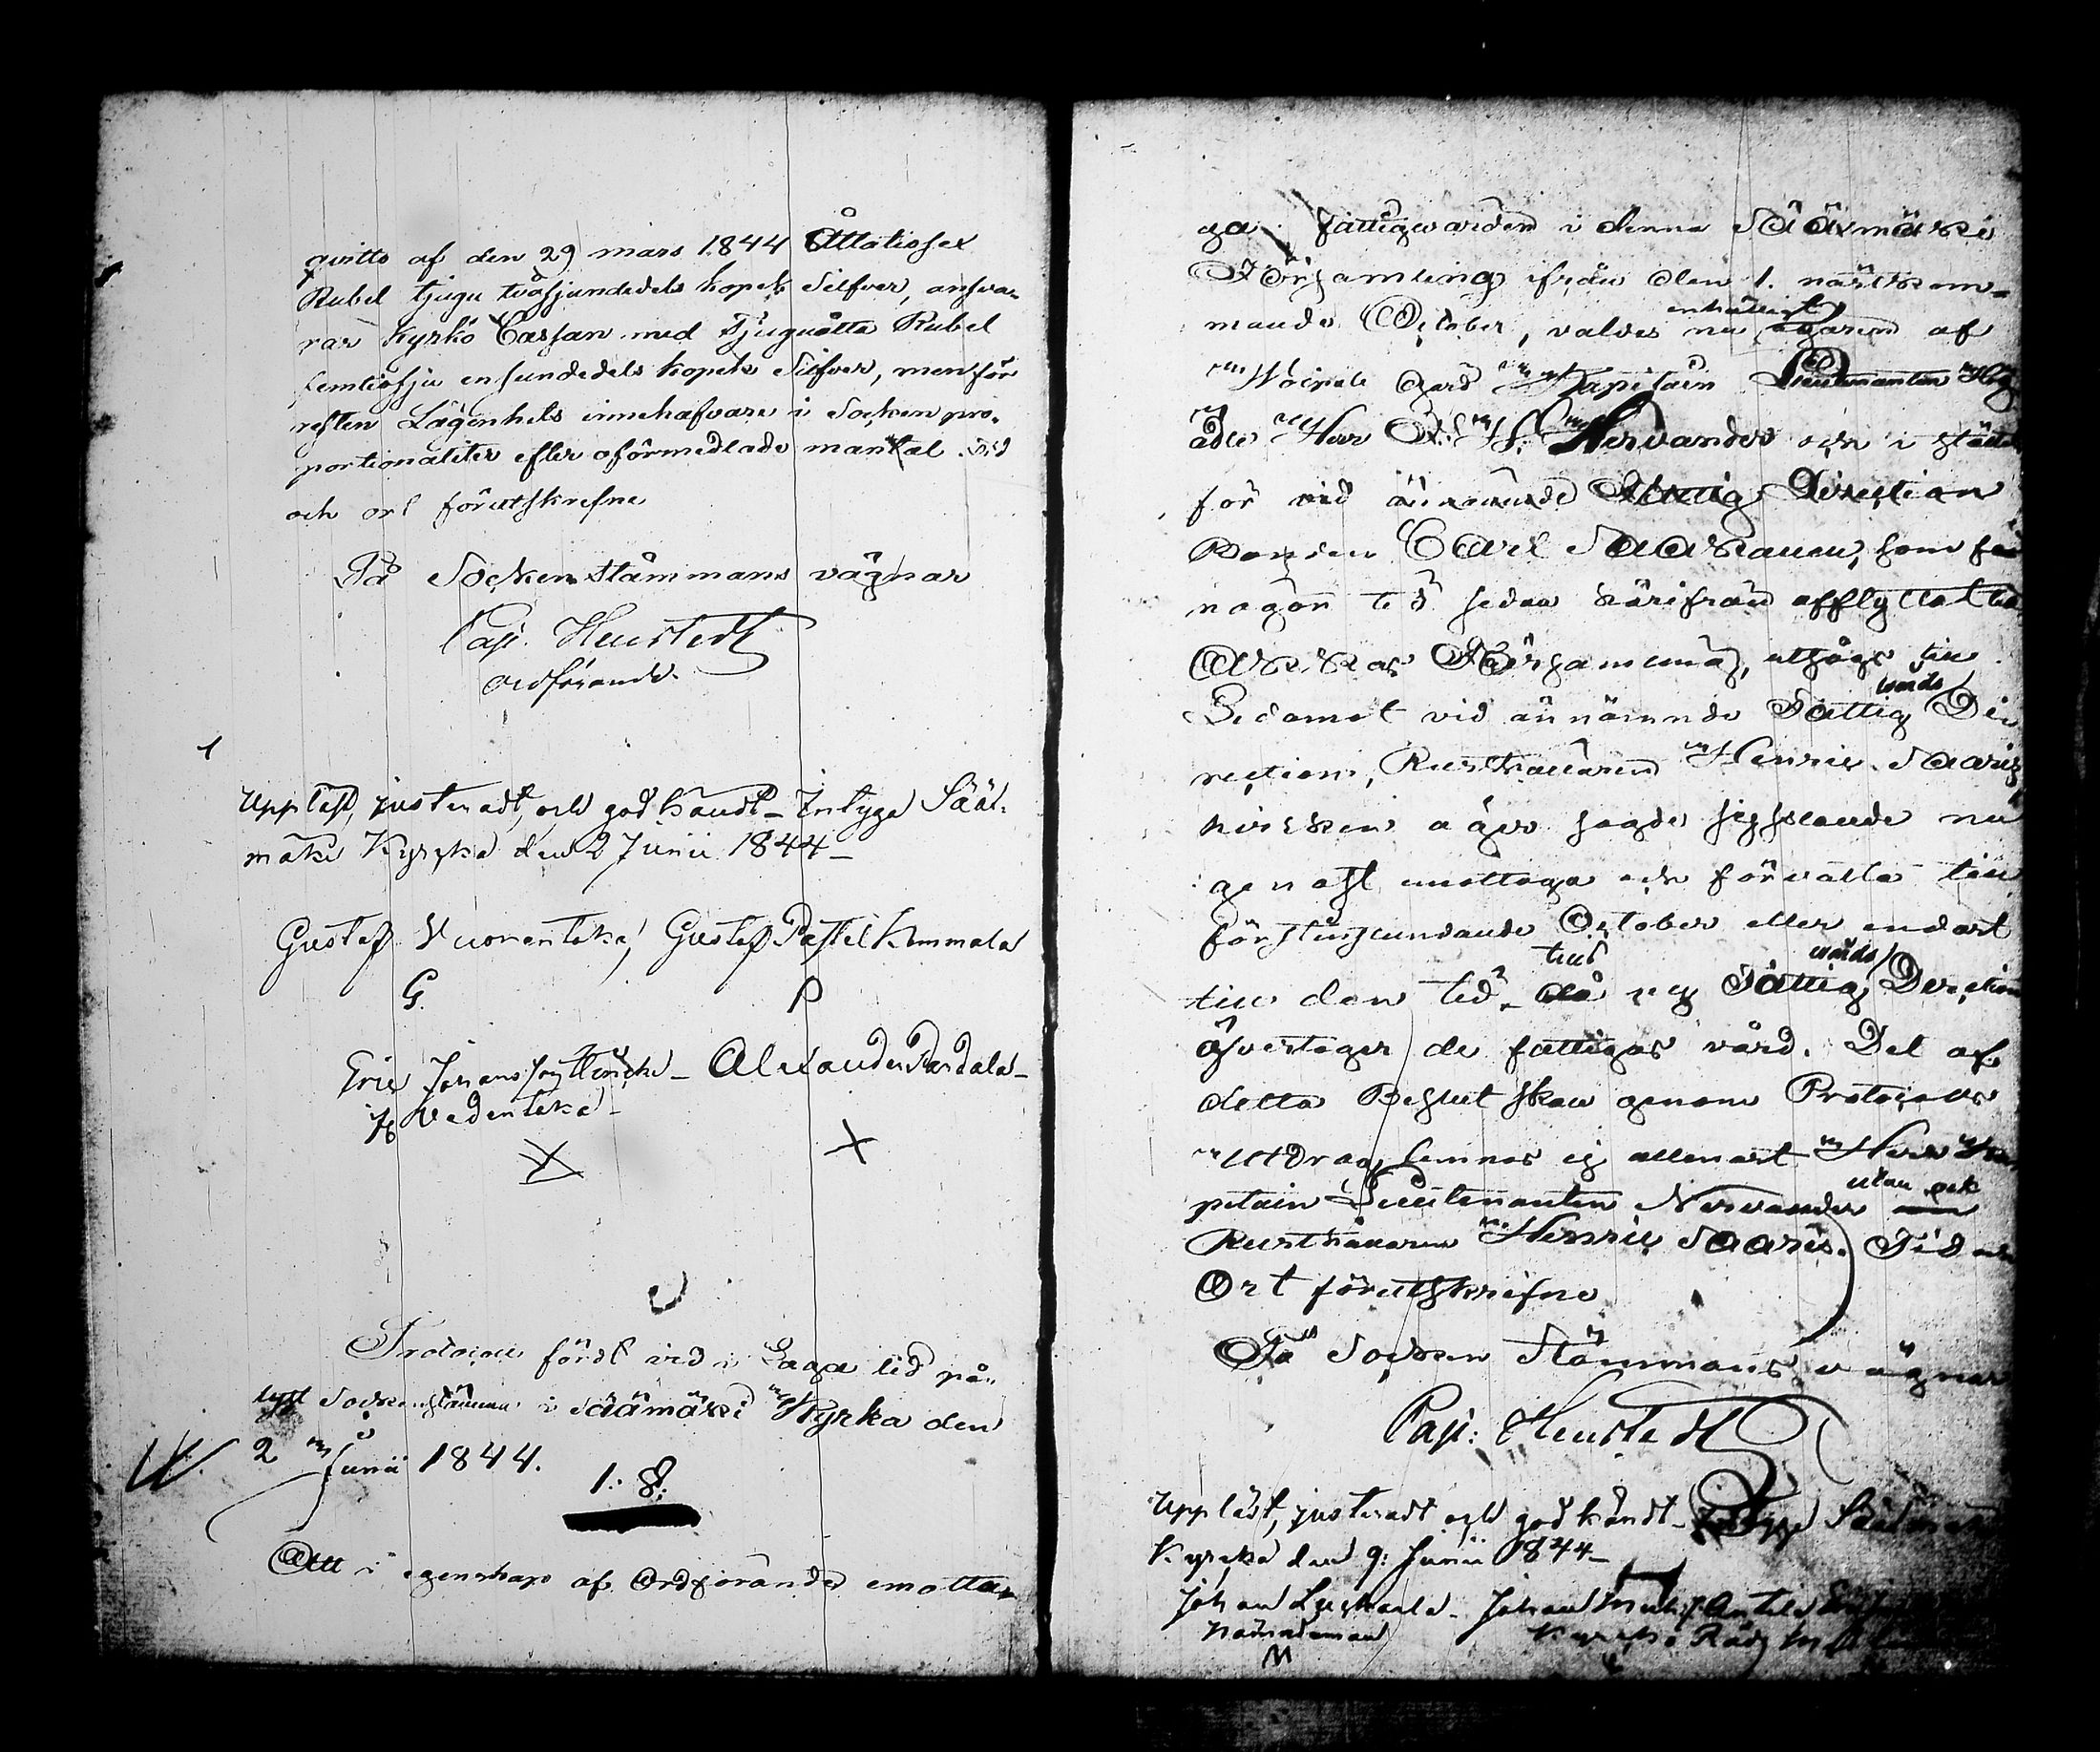 qvitto af den 29 mars 1844 Åttatiosex
Rubel tjugu tvåsjundedels kopek Silfver, ansva-
rar Kyrko Cassan med Tjuguåtta Rubel
femtiosju ensjundedels kopek Silfver, men för
resten Lägenhets innehafvare i Socken pro-
portionaliter efter oförmedlade mantal. Tid
och ort förutskrefne
På Sockenstämmans vägnar
Casp. Heurstedt
ordförande.
Uppläst, justeradt, och godkändt - Intyga Sääx-
mäki Kyrcka den 2 Junii 1844 -
Gustaf Vuorentaka, Gustaf Pastel Kemmola
G. P
Eric Johansson - Alexander Pardala -
Vedentaka -
X X
Protocoll fördt vid i Laga tid på-
lyst Sockenstämma i Sääxmäki Kyrka den
2 Junii 1844.
1. §.
Att i egenskap af Ordförande emotta-
ga fattigvården i denna Sääxmäki
Församling ifrån den 1. nästkom-
mande October, valdes nu enhälligt ägaren af
Gård Kapitain Lieutenanten Hög
ädle Herr Nervander och i stället
för vid ännämnde Fattig Direction
Bonden Carl Saxanen, som för
någon tid sedan härifrån afflyttat till
Akkas Församling, utsågs till
Ledamot vid ännämnde Fattig vårds Di-
rection, Rusthållaren Henric Saaris
hvilken äger sagde syssla nu
genast emottaga och förvalta till
förstinstundande October eller endast
till den tid - då tills ny Fattig vårds Direction
öfvertager de fattigas vård. Del af
detta Beslut skall genom Protocolls
Utdrag lemnas ej allenast Herr Ka-
pitain Lieutenanten Nervander utan ock
Rusthållaren Henric Saaris. Tid och
Ort förutskrifne
På Socken Stämmans vägnar
Casp: Heurstedt
Uppläst, justeradt och godkändt - Intyga Sääxmäki
Kyrcka den 9: Junii 1844 -
Johan - Johan Antila
Nämndeman Kyrcko Råds